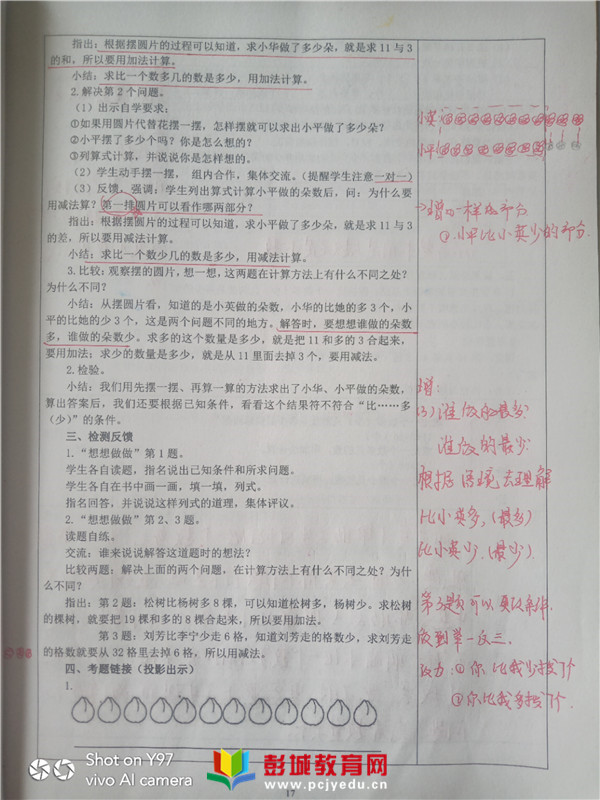 指出：根据摆圆片的过程可以知道，求小华做了多少朵，就是求11与3
的和，所以要用加法计算。
小结：求比一个数多几的数是多少，用加法计算。
2.解决第2个问题。
（1）出示自学要求：
①如果用圆片代替花摆一摆，怎样摆就可以求出小平做了多少朵？
②小平摆了多少个？你是怎么想的？
③列算式计算，并说说你是怎样想的。
（2）学生动手摆一摆， 组内合作，集体交流。（提醒学生注意一对一）
（3）反馈，强调：学生列出算式计算小平做的朵数后，问：为什么要
用减法算？第一排圆片可以看作哪两部分？
指出：根据摆圆片的过程可以知道，求小平做了多少朵，就是求11与3
的差，所以要用减法计算。
小结：求比一个数少几的数是多少，用减法计算。
3.比较：观察摆的圆片，想一想，这两题在计算方法上有什么不同之处？
为什么不同？
小结：从摆圆片看，知道的是小英做的朵数，小华的比她的多3个，小
平的比她的少3个，这是两个问题不同的地方。解答时，要想想谁做的朵数
多，谁做的朵数少。求多的这个数量是多少，就是把11和多的3合起来，
要用加法；求少的数量是多少，就是从11里面去掉3个，要用减法。
2.检验。
小结：我们用先摆一摆、再算一算的方法求出了小华、小平做的朵数，
算出答案后，我们还要根据已知条件，看看这个结果符不符合“比……多
（少）”的条件。
三、检测反馈
1.“想想做做”第1题。
学生各自读题，指名说出已知条件和所求问题。
学生各自在书中画一画，填一填，列式。
指名回答，并说说这样列式的道理，集体评议。
2.“想想做做”第2、3题。
读题自练。
交流：谁来说说解答这道题时的想法？
比较两题：解决上面的两个问题，在计算方法上有什么不同之处？为什
么不同？
指出：第2题：松树比杨树多8棵，可以知道松树多，杨树少。求松树
的棵树，就要把19棵和多的8棵合起来，所以要用加法。
第3题：刘芳比李宁少走6格，知道刘芳走的格数少，求刘芳走
的格数就要从32格里去掉6格，所以用减法。
四、考题链接（投影出示）
1.
小英
小平
①一样的部分
②小平比小英少的部分.
增：
(3) 谁做的最多?
谁做的最少?
根据 去理解
比小英多，(最多)
比小英少.(最少).
第3题可以更改条件.
做到举一反三.
①你比我少找了个
②你比我多找了个.
17
Shot on Y97
vivo AI camera
彭城教育网
www.pcjyedu.cn